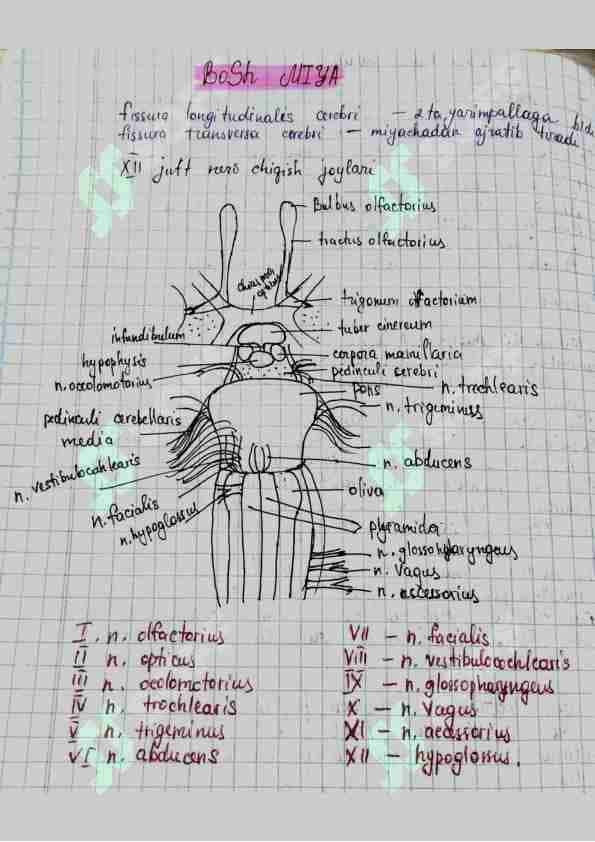 BoSh MIYA
fissura longitudinales cerebri - 2 ta, yarimpallaga
fissura transversa cerebri - miyachadan ajratib turadi
XII juft nerv chiqish joylari
Bulbus olfactorius
tractus olfactorius
trigonum olfactorium
infundibulum
tuber cinereum
hypophysis
corpora mamillaria
pedinculi cerebri
n. occolomotorius
n. trochlearis
pons
n. trigeminus
pedinculi cerebellaris
media
n. abducens
n. vestibulocohlearis
oliva
n. facialis
n. hypoglossus
pyramida
n. glossopharyngeus
n. vagus
n. accessorius
I. n. olfactorius
II n. opticus
III n. occolomotorius
IV n. trochlearis
V n. trigeminus
VI n. abducens
VII - n. facialis
VIII - n. vestibulocochlearis
IX - n. glossopharyngeus
X - n. vagus
XI - n. acessorius
XII - hypoglossus.